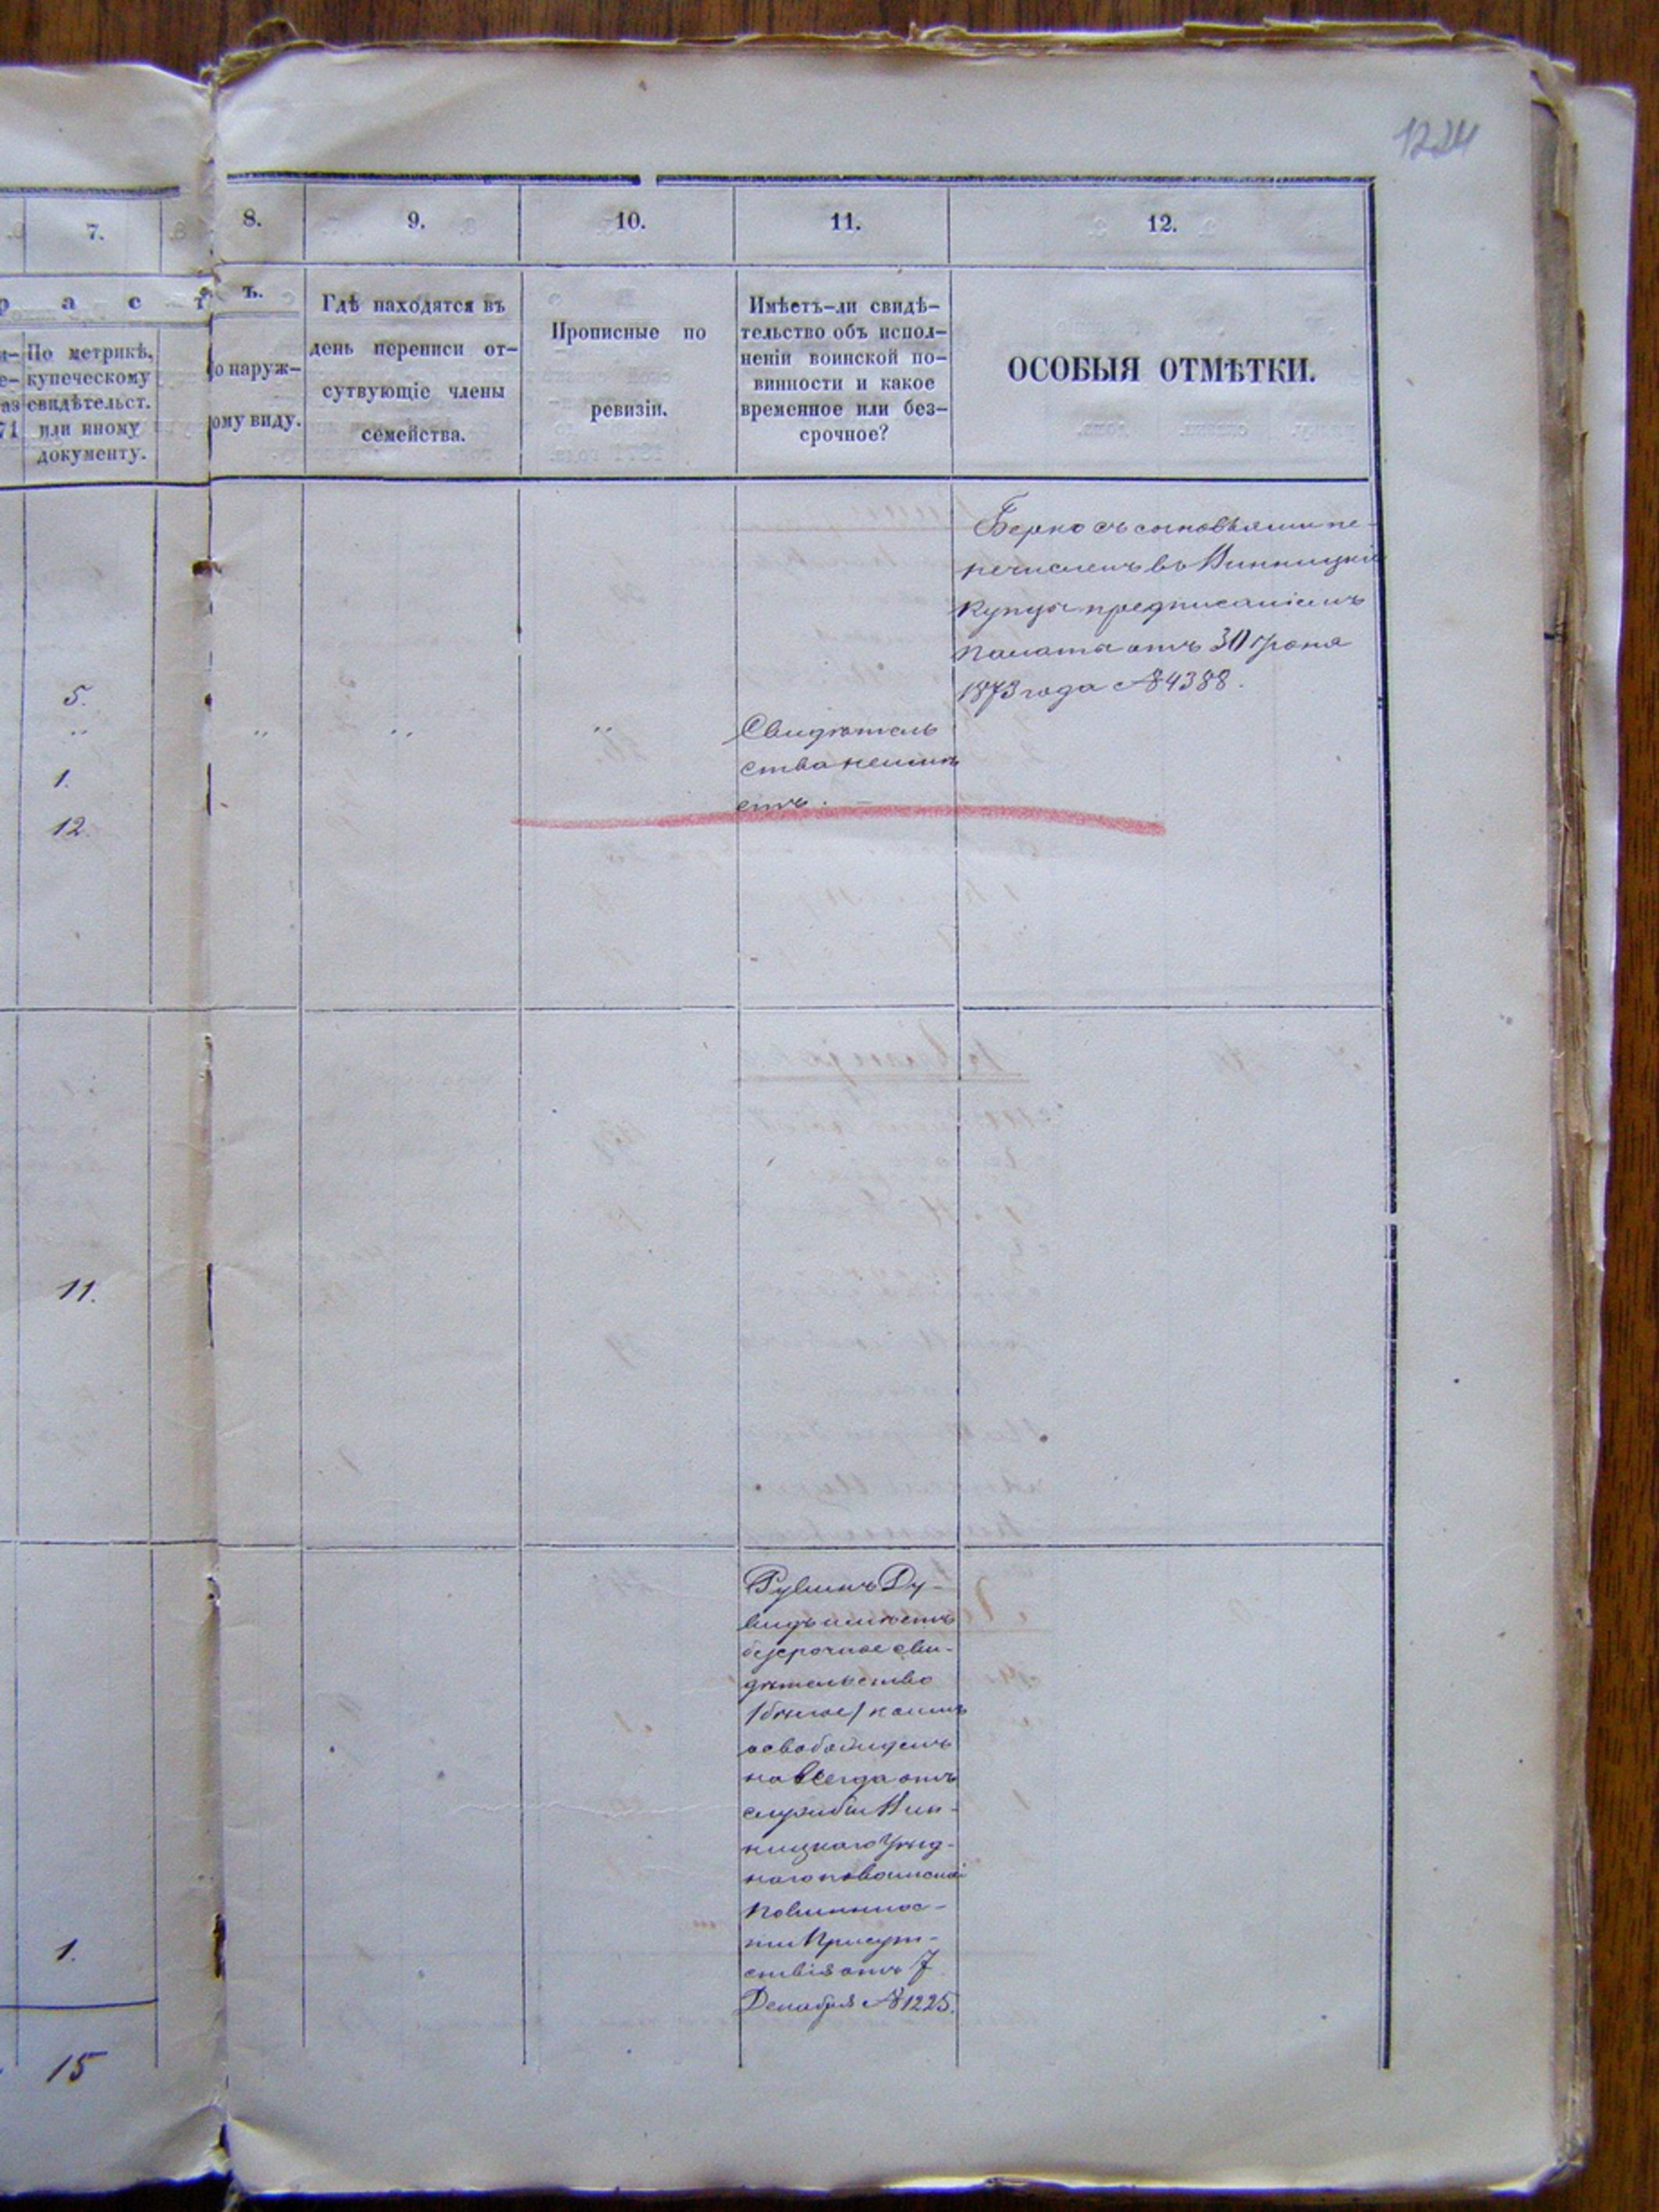 1224
7.
8.
9.
10.
11.
12.
р а с т
ъ.
По метрикѣ,
купеческому
свидѣтельст.
или иному
документу.
о наруж-
ому виду.
Гдѣ находятся въ
день переписи от-
сутвующіе члены
семейства.
Прописные по
ревизіи.
Имѣетъ-ли свидѣ-
тельство объ испол-
неніи воинской по-
винности и какое
временное или без-
срочное?
ОСОБЫЯ ОТМѢТКИ.
Берко съ сыновьями пе-
речисленъ въ Винницкіе
купцы предписаніемъ
палаты отъ 30
1873 года №4388.
5.
1.
12.
Свидѣтель
ства неимѣ
етъ.
11.
Рувинъ Ду-
видъ имѣетъ
безсрочное сви-
дѣтельство
/бѣлое/ коимъ
освобожденъ
на всегда отъ
службы Вин-
ницкаго Уѣзд-
наго по воинской
повиннос-
ти Присут-
ствія отъ 7
Декабря №1225.
1.
15